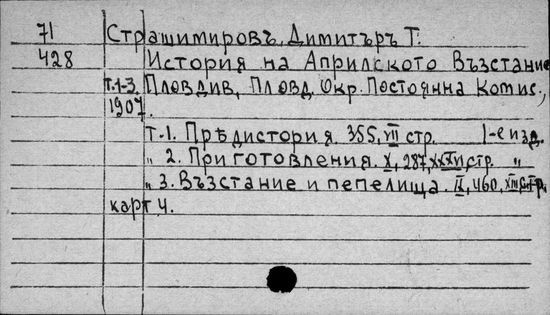 71 Страшимировъ, Димитъръ Т.
428 История на Априлското Възстание
т.1-3. Пловдив, Пловд. Окр. Постоянна Комис.,
1907.
Т.1. Прѣдистория. 355, VII стр. 1-е изд.
„ 2. Приготовления. X, 287, XXXVI стр. „
„ 3. Възстание и пепелища. IX, 460, XIII стр.,
карт 4.